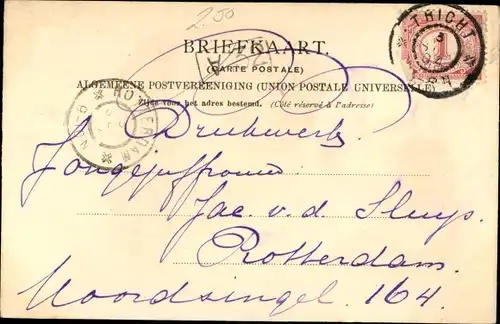 2.50
BRIEFKAART.
(CARTE POSTALE)
ALGEMEENE POSTVEREENIGING (UNION POSTALE UNIVERSELLE)
Zijde voor het adres bestemd. (Côté réservé à l'adresse)
TRICHT
ROTTERDAM
Drukwerk
Jongejuffrouw
Jac. v. d. Sluys.
Rotterdam.
Noordsingel 164.